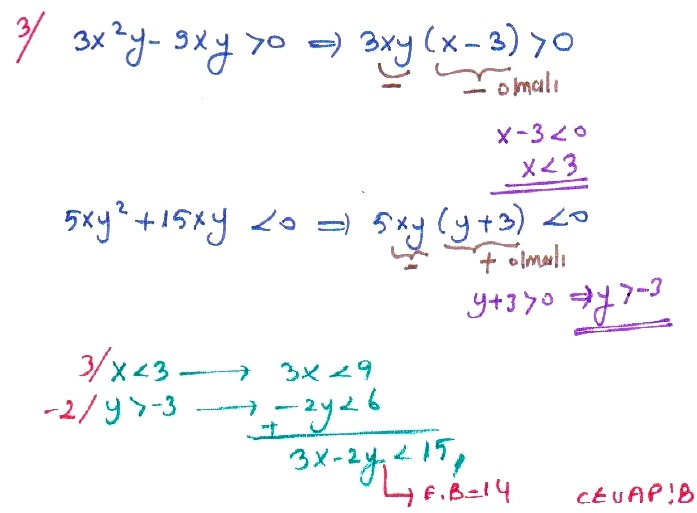 3/ 3x²y - 9xy > 0 ⇒ 3xy (x - 3) > 0
- - olmalı
x - 3 < 0
x < 3
5xy² + 15xy < 0 ⇒ 5xy (y + 3) < 0
- + olmalı
y + 3 > 0 ⇒ y > -3
3/ x < 3 → 3x < 9
-2/ y > -3 → -2y < 6
+
3x - 2y < 15,
↳ E.B = 14 CEVAP: B